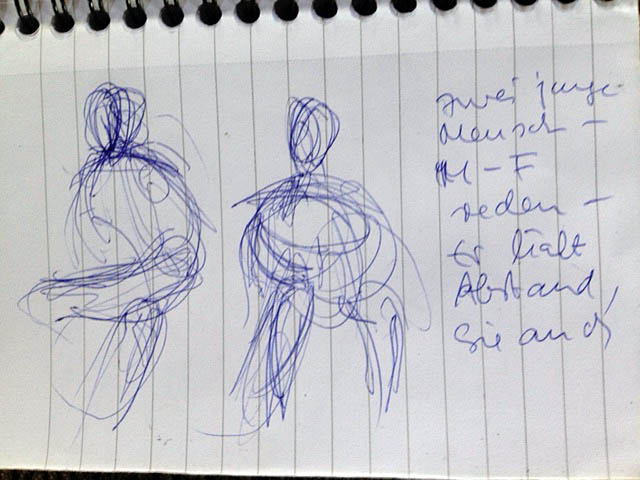 zwei junge
Mensch –
M – F
reden –
Er hält
Abstand,
Sie auch